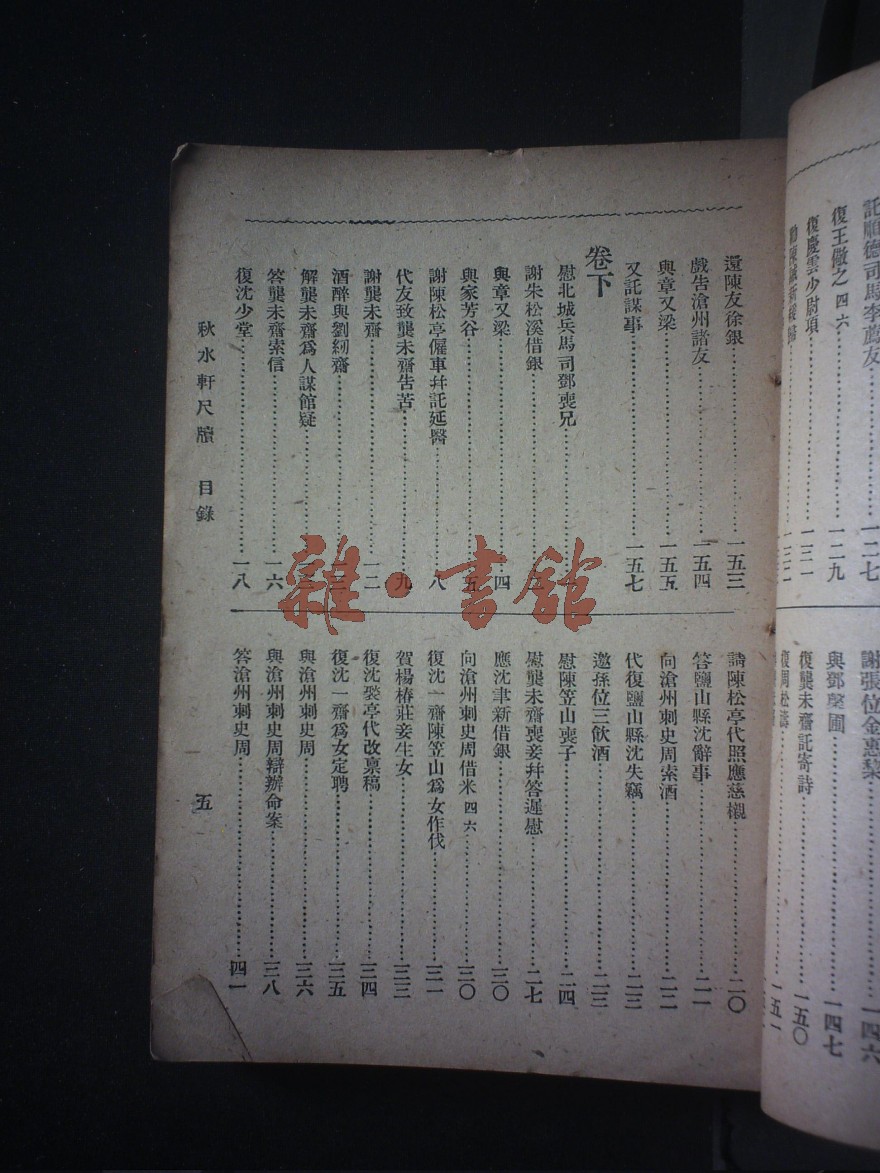 託順德司馬李薦友 一二七
復王儆之四六 一二九
復慶雲少尉項 一三一
謝張位金惠棃 一四六
與鄧壄圃 一四七
復龔未齋託寄詩 一五〇
復周松濤 一五一
還陳友徐銀 一五三
戲告滄州諸友 一五四
與章又梁 一五五
又託謀事 一五七
卷下
慰北城兵馬司鄧喪兄
謝朱松溪借銀
與章又梁 四
與家芳谷 五
謝陳松亭僱車幷託延醫 八
代友致龔未齋告苦 九
謝龔未齋 一二
酒醉與劉紉齋
解龔未齋爲人謀館疑
答龔未齋索信 一六
復沈少堂 一八
請陳松亭代照應慈櫬 二〇
答鹽山縣沈辭事 二一
向滄州刺史周索酒 二二
代復鹽山縣沈失竊 二三
邀孫位三飮酒 二三
慰陳笠山喪子 二四
慰龔未齋喪妾幷答遲慰 二七
應沈聿新借銀 三〇
向滄州刺史周借米四六 三〇
復沈一齋陳笠山爲女作伐 三一
賀楊椿莊妾生女 三三
復沈褧亭代改稟稿 三四
復沈一齋爲女定聘 三五
與滄州刺史周 三六
與滄州刺史周辯辦命案 三八
答滄州刺史周 四一
秋水軒尺牘 目錄
五
雜·書館